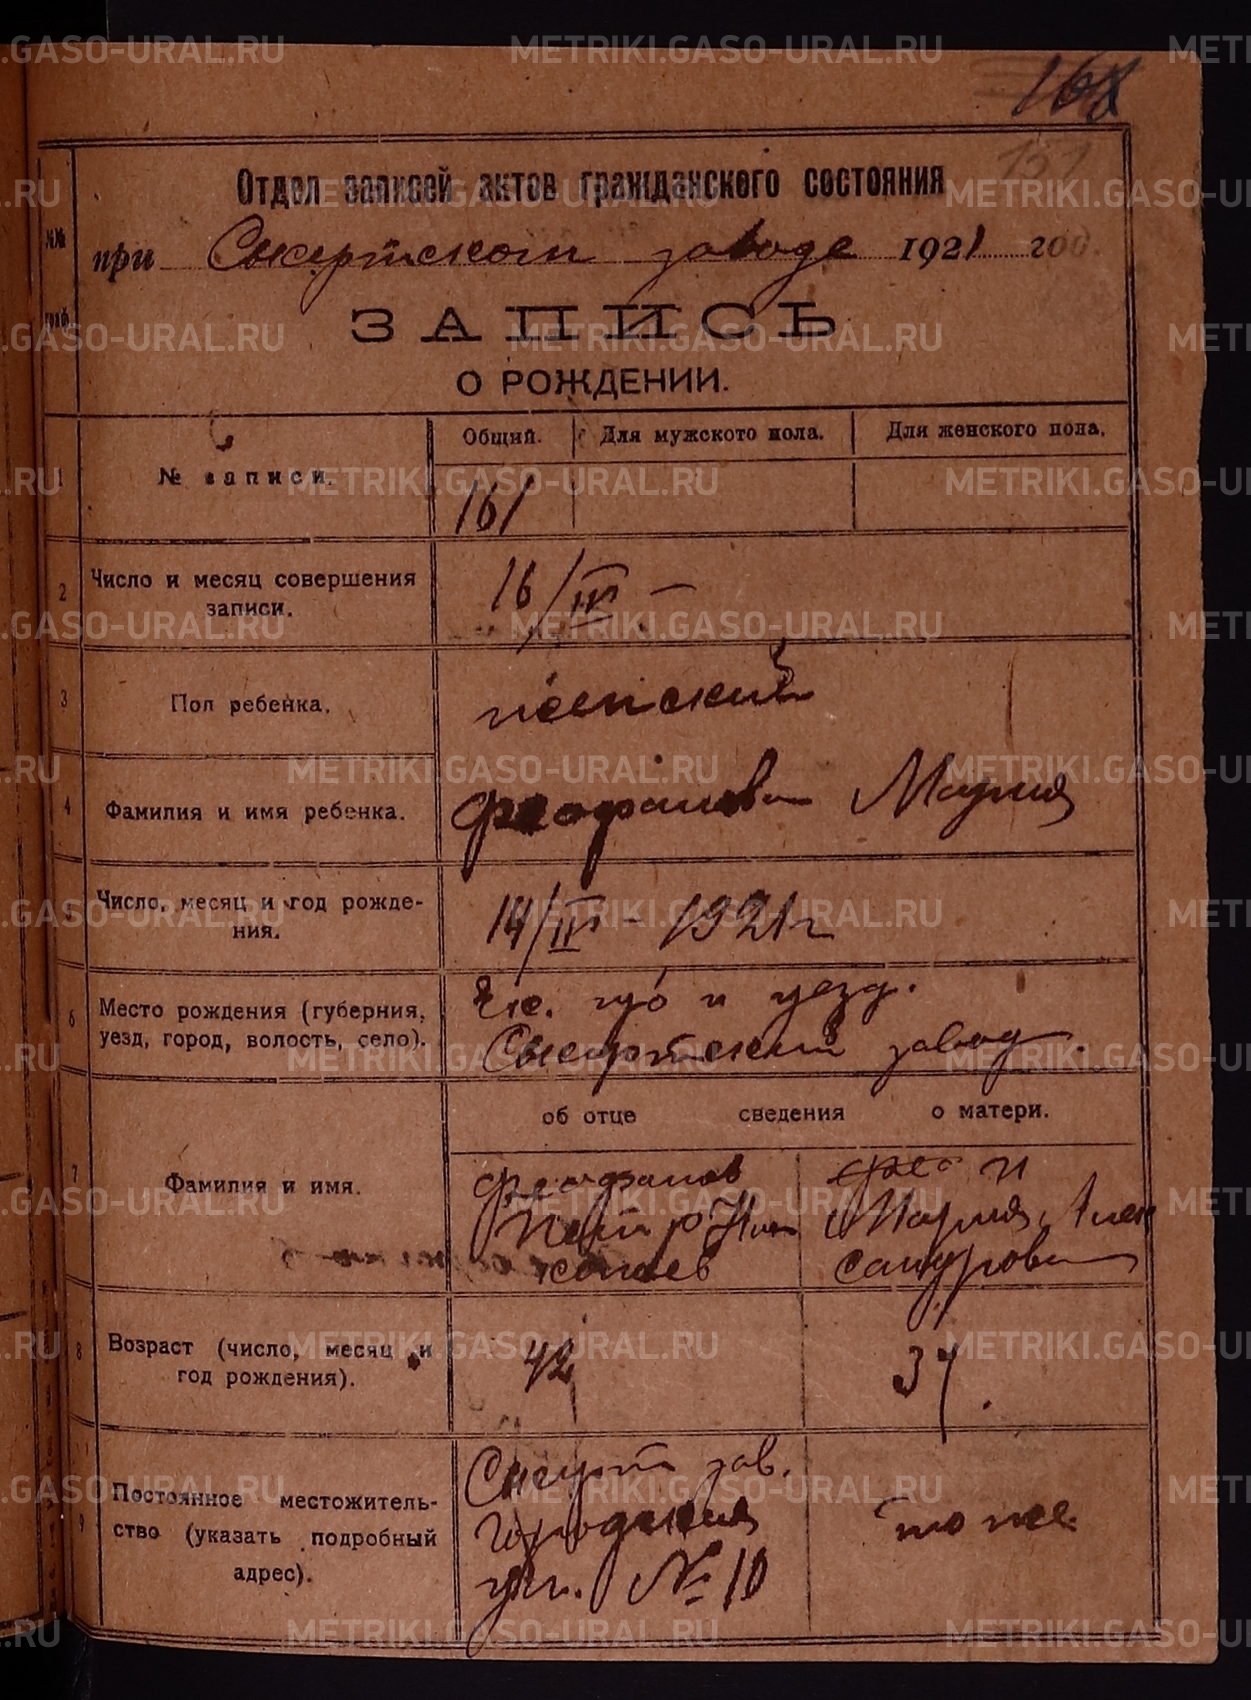 METRIKI.GASO-URAL.RU
168
151
Отдел записей актов гражданского состояния
№№ граф.
при Сысертском заводе 1921 год.
ЗАПИСЬ
О РОЖДЕНИИ.
Общий. Для мужского пола. Для женского пола.
1 № записи. 161
2 Число и месяц совершения записи. 16/IV –
3 Пол ребенка. женский
4 Фамилия и имя ребенка. Феофанова Мария
Число, месяц и год рожде-
ния. 14/IV – 1921 г
6 Место рождения (губерния, Ек. губ и уезд.
уезд, город, волость, село). Сысертский завод.
об отце сведения о матери.
7 Фамилия и имя.
Феофанов
Петр
Фео
Мария Алек
сандровна
8 Возраст (число, месяц и
год рождения). 42 37.
9 Постоянное местожитель-
ство (указать подробный
адрес).
Сысерт зав.
Городская
ул. № 10
то же